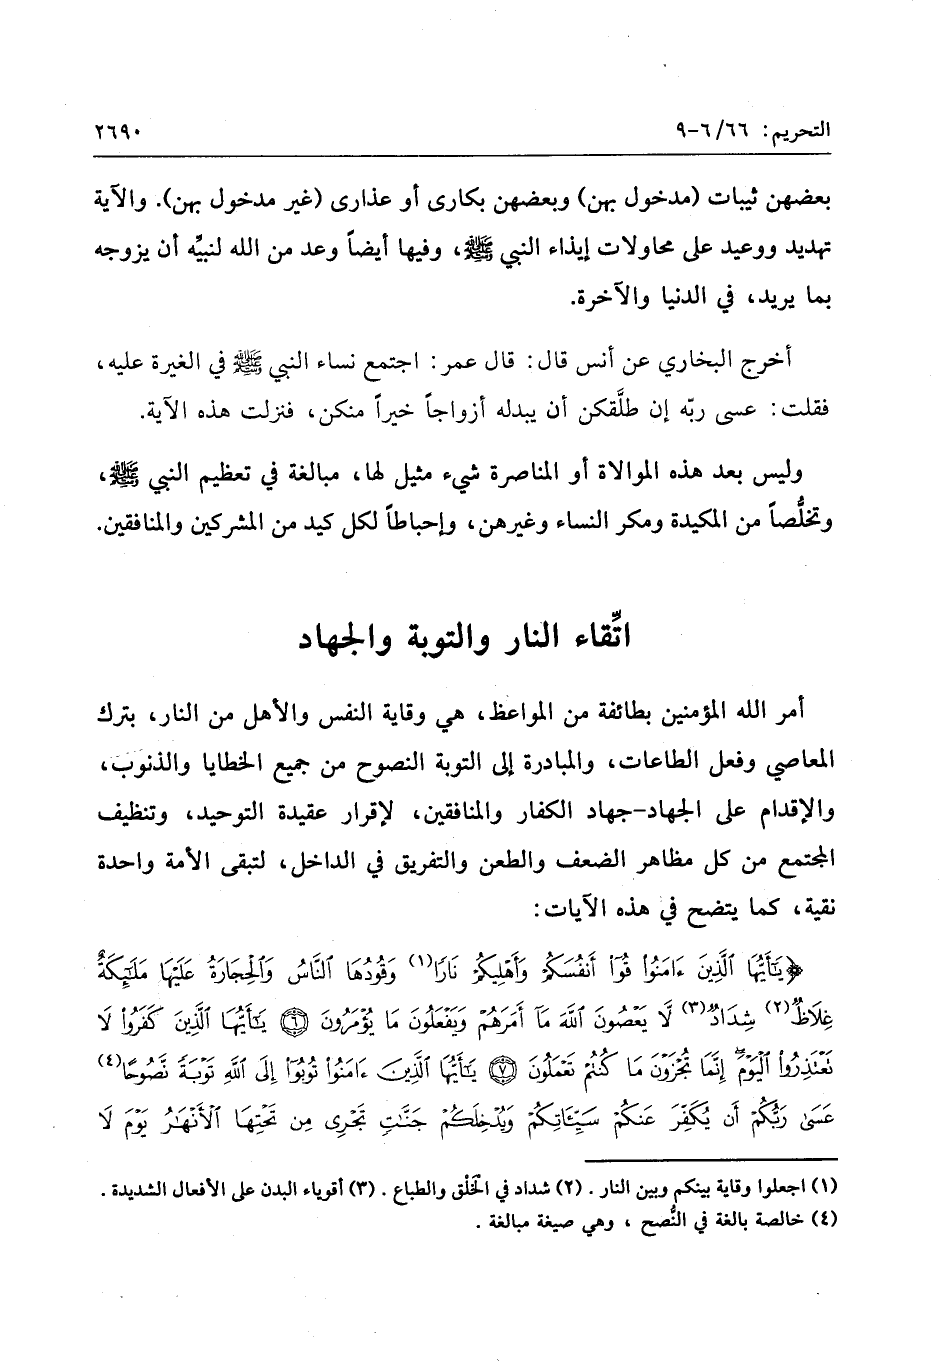 التحريم: ٦٦/ ٦-٩
٢٦٩٠
بعضهن ثيبات (مدخول بهن) وبعضهن بكارى أو عذارى (غير مدخول بهن). والآية
تهديد ووعيد على محاولات إيذاء النبي ﷺ، وفيها أيضاً وعد من الله لنبيِّه أن يزوجه
بما يريد، في الدنيا والآخرة.
أخرج البخاري عن أنس قال: قال عمر: اجتمع نساء النبي ﷺ في الغيرة عليه،
فقلت: عسى ربّه إن طلَّقكن أن يبدله أزواجاً خيراً منكن، فنزلت هذه الآية.
وليس بعد هذه الموالاة أو المناصرة شيء مثيل لها، مبالغة في تعظيم النبي ﷺ،
وتخلُّصاً من المكيدة ومكر النساء وغيرهن، وإحباطاً لكل كيد من المشركين والمنافقين.
اتِّقاء النار والتوبة والجهاد
أمر الله المؤمنين بطائفة من المواعظ، هي وقاية النفس والأهل من النار، بترك
المعاصي وفعل الطاعات، والمبادرة إلى التوبة النصوح من جميع الخطايا والذنوب،
والإقدام على الجهاد-جهاد الكفار والمنافقين، لإقرار عقيدة التوحيد، وتنظيف
المجتمع من كل مظاهر الضعف والطعن والتفريق في الداخل، لتبقى الأمة واحدة
نقية، كما يتضح في هذه الآيات:
﴿يَٰٓأَيُّهَا ٱلَّذِينَ ءَامَنُوا۟ قُوٓا۟ أَنفُسَكُمْ وَأَهْلِيكُمْ نَارًا(١) وَقُودُهَا ٱلنَّاسُ وَٱلْحِجَارَةُ عَلَيْهَا مَلَٰٓئِكَةٌ
غِلَاظٌ(٢) شِدَادٌ(٣) لَّا يَعْصُونَ ٱللَّهَ مَآ أَمَرَهُمْ وَيَفْعَلُونَ مَا يُؤْمَرُونَ ٦ يَٰٓأَيُّهَا ٱلَّذِينَ كَفَرُوا۟ لَا
تَعْتَذِرُوا۟ ٱلْيَوْمَ ۖ إِنَّمَا تُجْزَوْنَ مَا كُنتُمْ تَعْمَلُونَ ٧ يَٰٓأَيُّهَا ٱلَّذِينَ ءَامَنُوا۟ تُوبُوٓا۟ إِلَى ٱللَّهِ تَوْبَةً نَّصُوحًا(٤)
عَسَىٰ رَبُّكُمْ أَن يُكَفِّرَ عَنكُمْ سَيِّـَٔاتِكُمْ وَيُدْخِلَكُمْ جَنَّٰتٍ تَجْرِى مِن تَحْتِهَا ٱلْأَنْهَٰرُ يَوْمَ لَا
(١) اجعلوا وقاية بينكم وبين النار . (٢) شداد في الخَلْق والطباع . (٣) أقوياء البدن على الأفعال الشديدة .
(٤) خالصة بالغة في النُّصح ، وهي صيغة مبالغة .